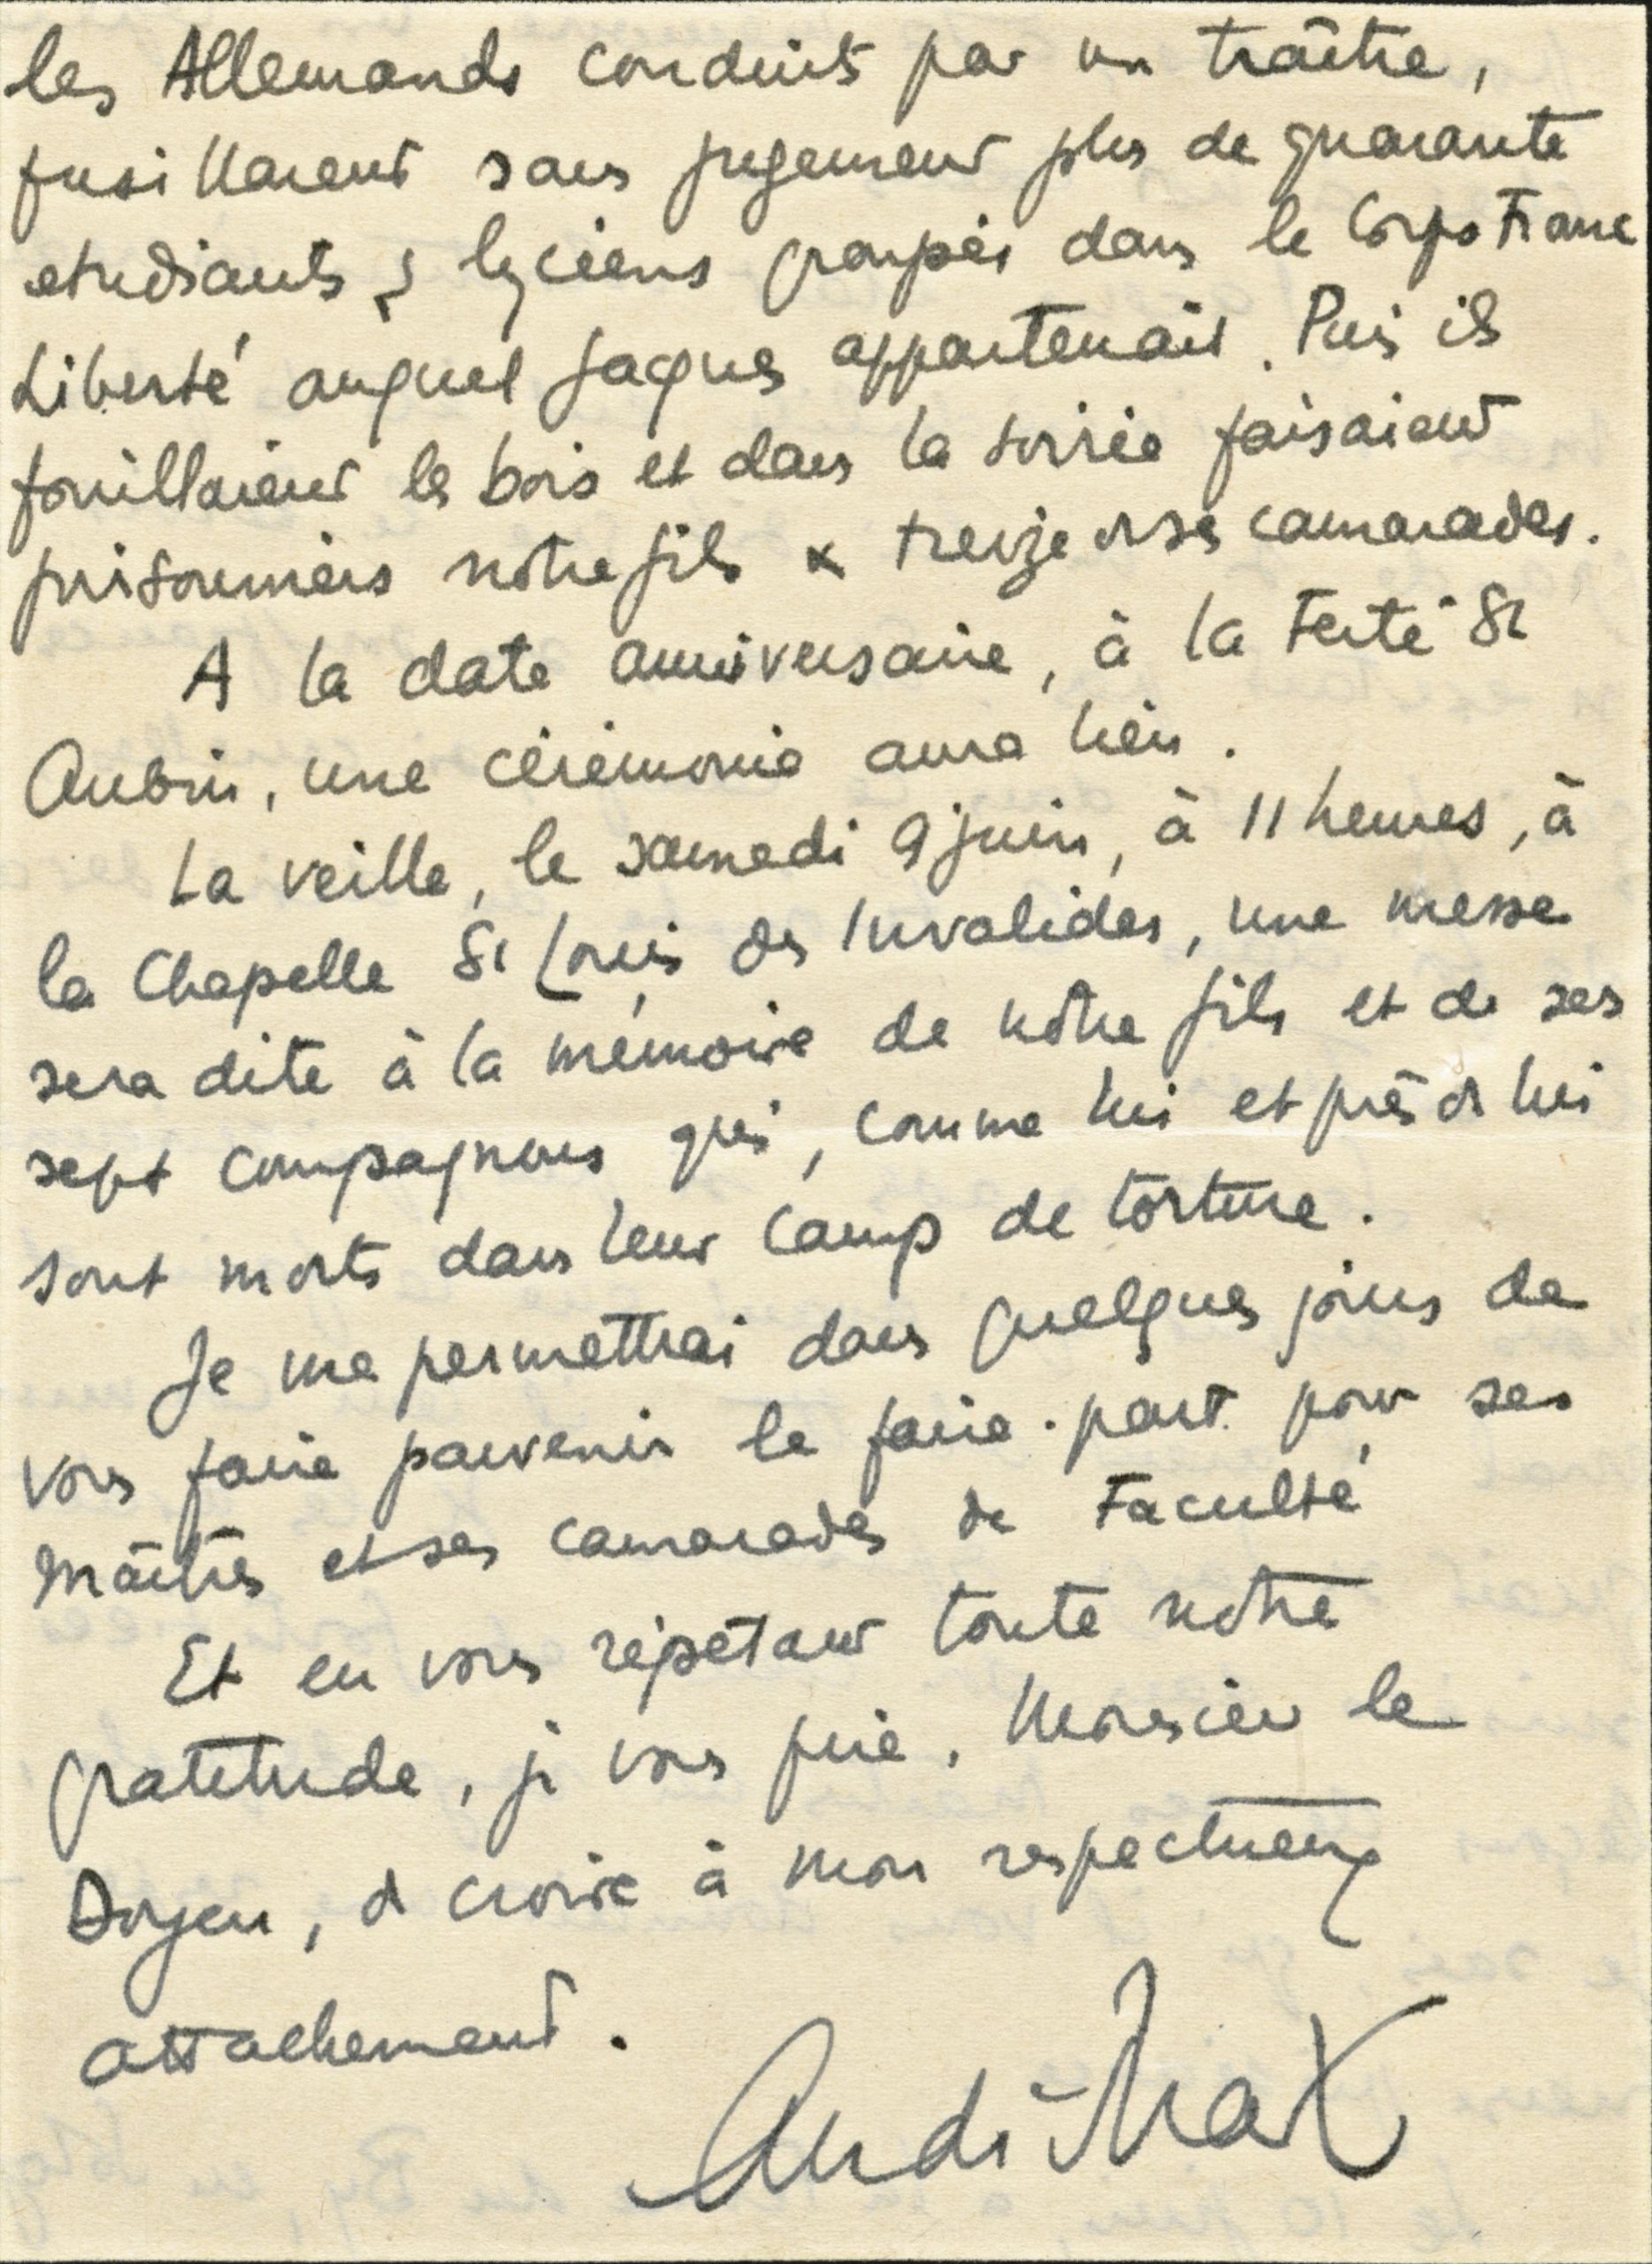 les Allemands conduits par un traître,
fusillaient sans jugement plus de quarante
etudiants & lycéens groupés dans le Corps Franc
Liberté auquel Jacques appartenait. Puis ils
fouillaient les bois et dans la soirée faisaient
prisonniers notre fils & treize de ses camarades.
A la date anniversaire, à la Ferté St
Aubin, une cérémonie aura lieu.
La veille, le samedi 9 juin, à 11 heures, à
la Chapelle St Louis des Invalides, une messe
sera dite à la mémoire de notre fils et de ses
sept compagnons qui, comme lui et près de lui
sont morts dans leur camp de torture.
Je me permettrai dans quelques jours de
vous faire parvenir le faire-part pour ses
maîtres et ses camarades de Faculté
Et en vous répétant toute notre
gratitude, je vous prie, Monsieur le
Doyen, de croire à mon respectueux
attachement.